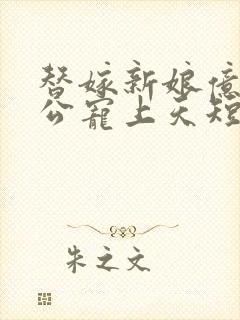 替嫁新娘亿
公宠上天短
朱之文